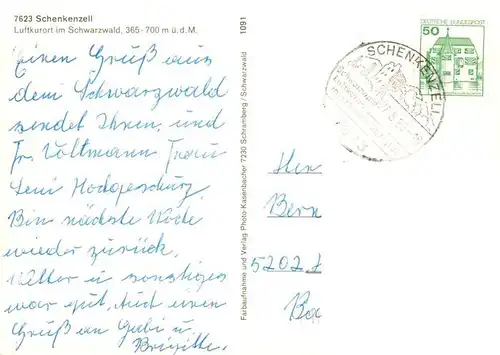 7623 Schenkenzell
Luftkurort im Schwarzwald, 365-700 m ü.d.M.
Einen Gruß aus
dem Schwarzwald
sendet Ihnen, und
Fr. Voltmann
Bin nächste Woche
wieder zurück.
Wetter u sonstiges
war gut. Auch einen
Gruß an Gabi u.
Brigitte.
Farbaufnahme und Verlag Photo-Kasenbacher 7230 Schramberg / Schwarzwald
1091
SCHENKENZELL
DEUTSCHE BUNDESPOST
50
Her
Bern
5202